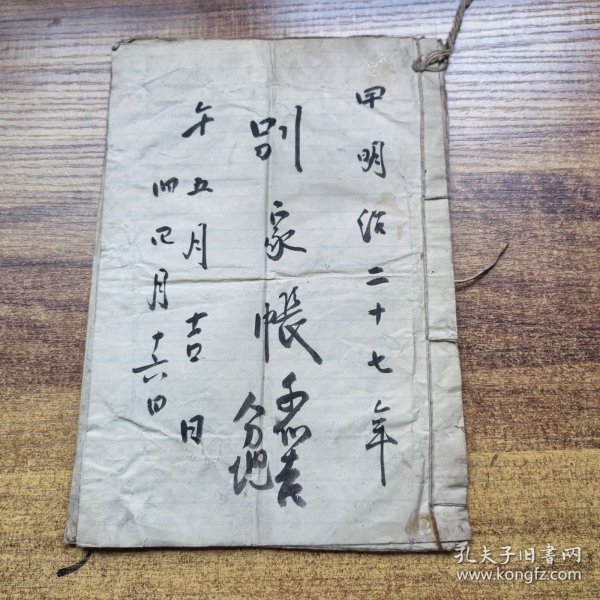 甲明治二十七年
別家帳
分地
午五月吉日
月十六日
孔夫子旧书网
www.kongfz.com